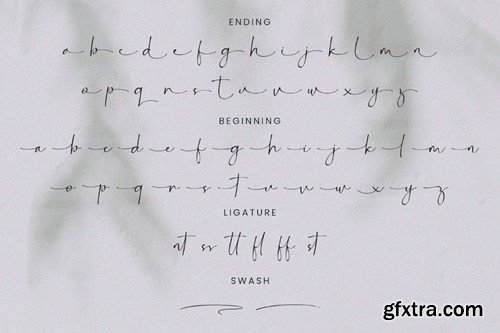 ENDING
a b c d e f g h i j k l m n
o p q r s t u v w x y z
BEGINNING
a b c d e f g h i j k l m n
o p q r s t u v w x y z
LIGATURE
nt ss tt fl ff st
SWASH
gfxtra.com